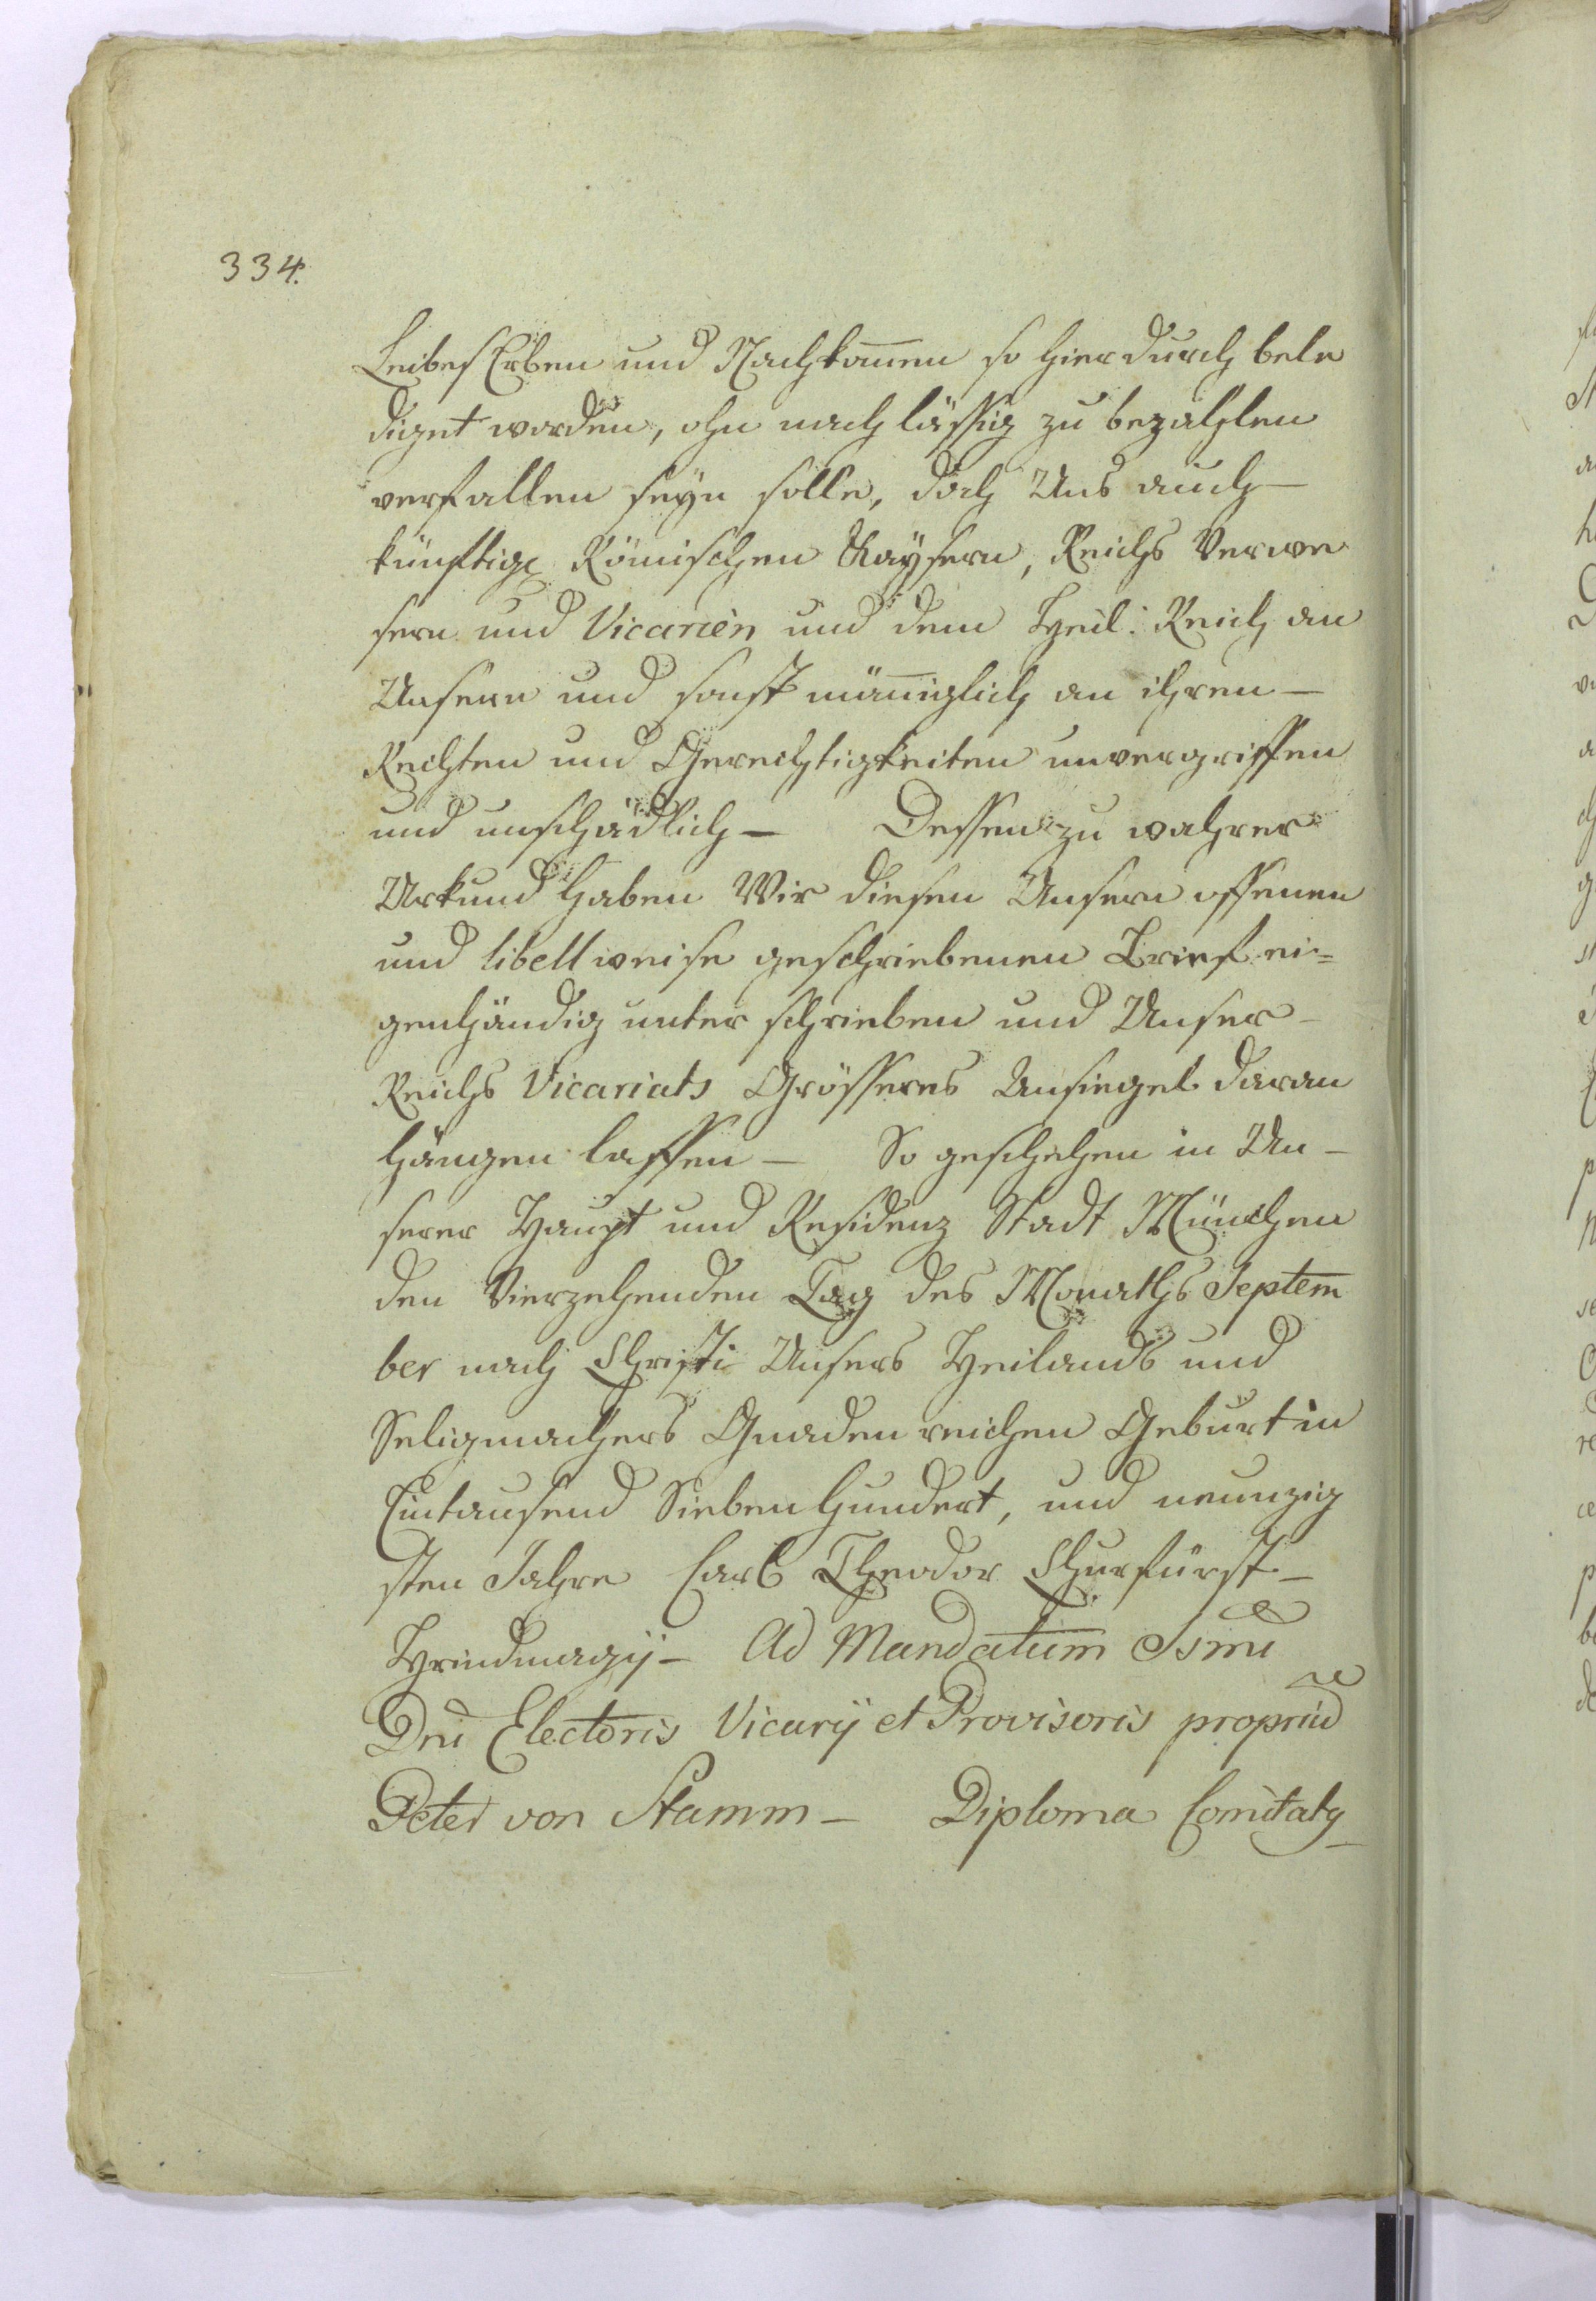 334.
Leibes Erben und Nachkom̄en so hierdurch bele
diget worden, ohn nachlässig zu bezahlen
verfallen seyn solle, doch Uns auch –
künftige Römischen Kaysern, Reichs Verwe
sern und Vicarien und dem Heil: Reich an
Unsern und sonst män̄iglich an ihren –
Rechten und Gerechtigkeiten unvergriffen
und unschädlich – Dessen zu wahrer
Urkund haben Wir diesen Unsern offenen
und libell weise geschriebenen Brief ei=
genhändig unterschrieben und Unser –
Reichs Vicariats Grösseres Insiegel daran
hängen lassen – So geschehen in Un –
serer Haupt und Residenz Stadt München
den Vierzehenden Tag des Monaths Septem̄
ber nach Christi Unsers Heilands und
Seligmachers Gnadenreichen Geburt in
Eintausend Siebenhundert, und neunzig
sten Jahre Carl Theodor Churfürst –
– Ad Mandatum Ssmi
Dni Electoris Vicarij et Provisoris
Peter von Stamm – Diploma Comitaty –